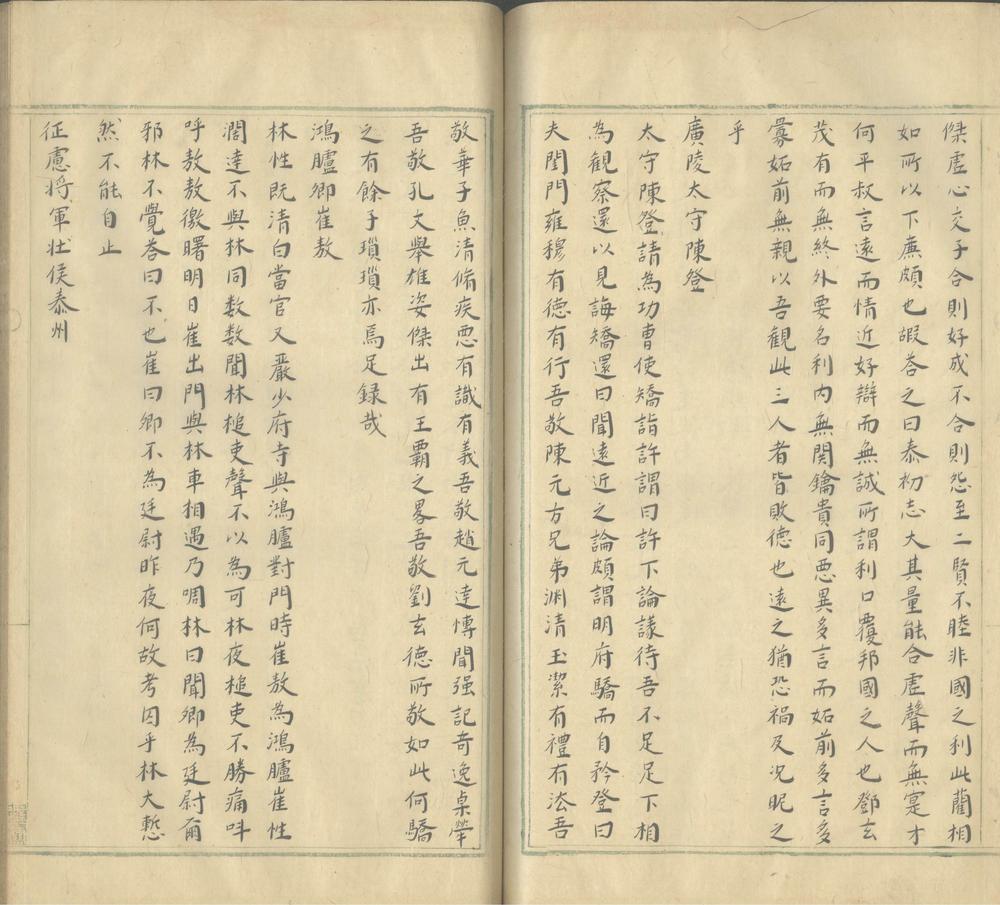 傑虛心交子合則好成不合則怨至二賢不睦非國之利此藺相
如所以下廉頗也嘏荅之曰泰初志大其量能合虛聲而無寔才
何平叔言遠而情近好辯而無誠所謂利口覆邦國之人也鄧玄
茂有而無終外要名利內無関鑰貴同惡異多言而妬前多言多
釁妬前無親以吾觀此三人者皆敗德也遠之猶恐禍及况昵之
乎
廣陵太守陳登
太守陳登請為功曹使矯詣許謂曰許下論議待吾不足足下相
為觀察還以見誨矯還曰聞遠近之論頗謂明府驕而自矜登曰
夫閨門雍穆有德有行吾敬陳元方兄弟渊清玉潔有禮有法吾
敬華子魚清脩疾惡有識有義吾敬趙元達博聞强記奇逸卓犖
吾敬孔文舉雄姿傑出有王霸之畧吾敬劉玄德所敬如此何驕
之有餘子瑣瑣亦焉足録哉
鴻臚卿崔敖
林性既清白當官又嚴少府寺與鴻臚對門時崔敖為鴻臚崔性
濶達不與林同数数聞林檛吏聲不以為可林夜檛吏不勝痛呌
呼敖敖徹曙明日崔出門與林車相遇乃啁林曰聞卿為廷尉爾
邪林不覺荅曰不也崔曰卿不為廷尉昨夜何故考囚乎林大慙
然不能自止
征慮將軍壮侯泰州